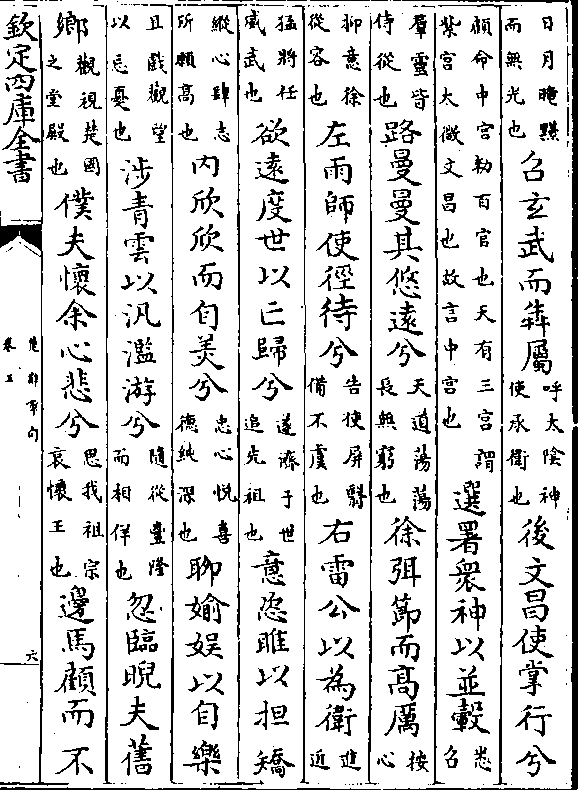 日月晻黮而無光也召玄武而犇屬呼太陰神使承衛也後文昌使掌行兮
顧命中宫勑百官也天有三宫謂紫宫太微文昌也故言中宫也選署衆神以並轂悉召
羣靈皆侍從也路曼曼其悠遠兮天道蕩蕩長無窮也徐弭節而高厲按心
抑意徐從容也左雨師使徑待兮告使屏翳備不虞也右雷公以為衛進近
猛將任威武也欲遠度世以亡歸兮遂濟于世追先祖也意恣睢以担矯
縱心肆志所願高也内欣欣而自美兮忠心悅喜德純深也聊媮娛以自樂
且戲觀望以忘憂也涉青雲以汎濫游兮隨從豐隆而相佯也忽臨睨夫舊
鄉觀視楚國之堂殿也僕夫懷余心悲兮思我祖宗哀懷王也邊馬顧而不
欽定四庫全書
楚辭章句
卷五
六